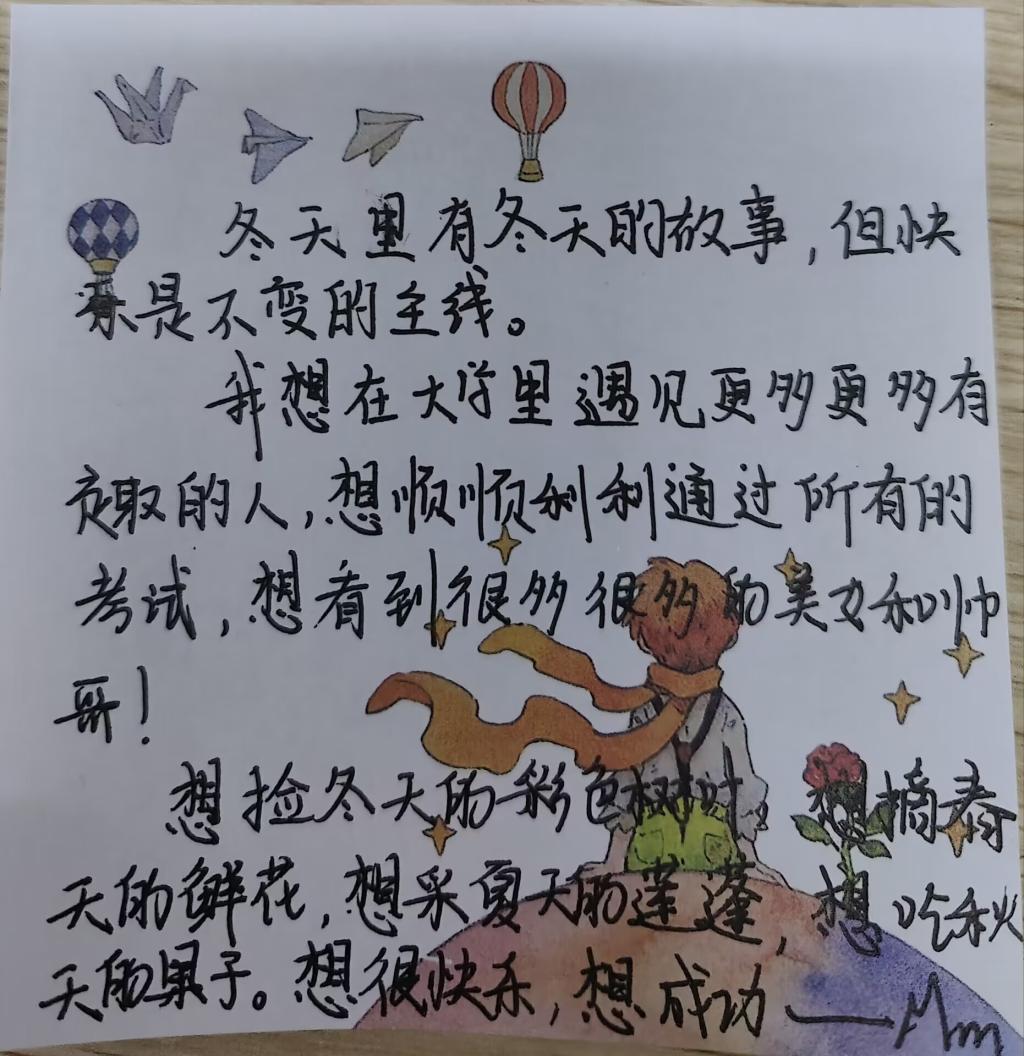 冬天里有冬天的故事,但快
乐是不变的主线。
我想在大学里遇见更多更多有
趣的人,想顺顺利利通过所有的
考试,想看到很多很多的美女和帅
哥!
想捡冬天的彩色树叶,想摘春
天的鲜花,想采夏天的莲蓬,想吃秋
天的果子。想很快乐,想成功——Mm